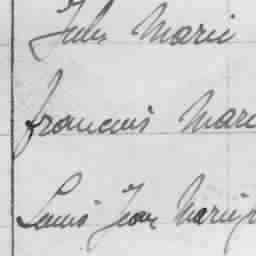 Jules Marie
francois Mari
Louis Jean Marie